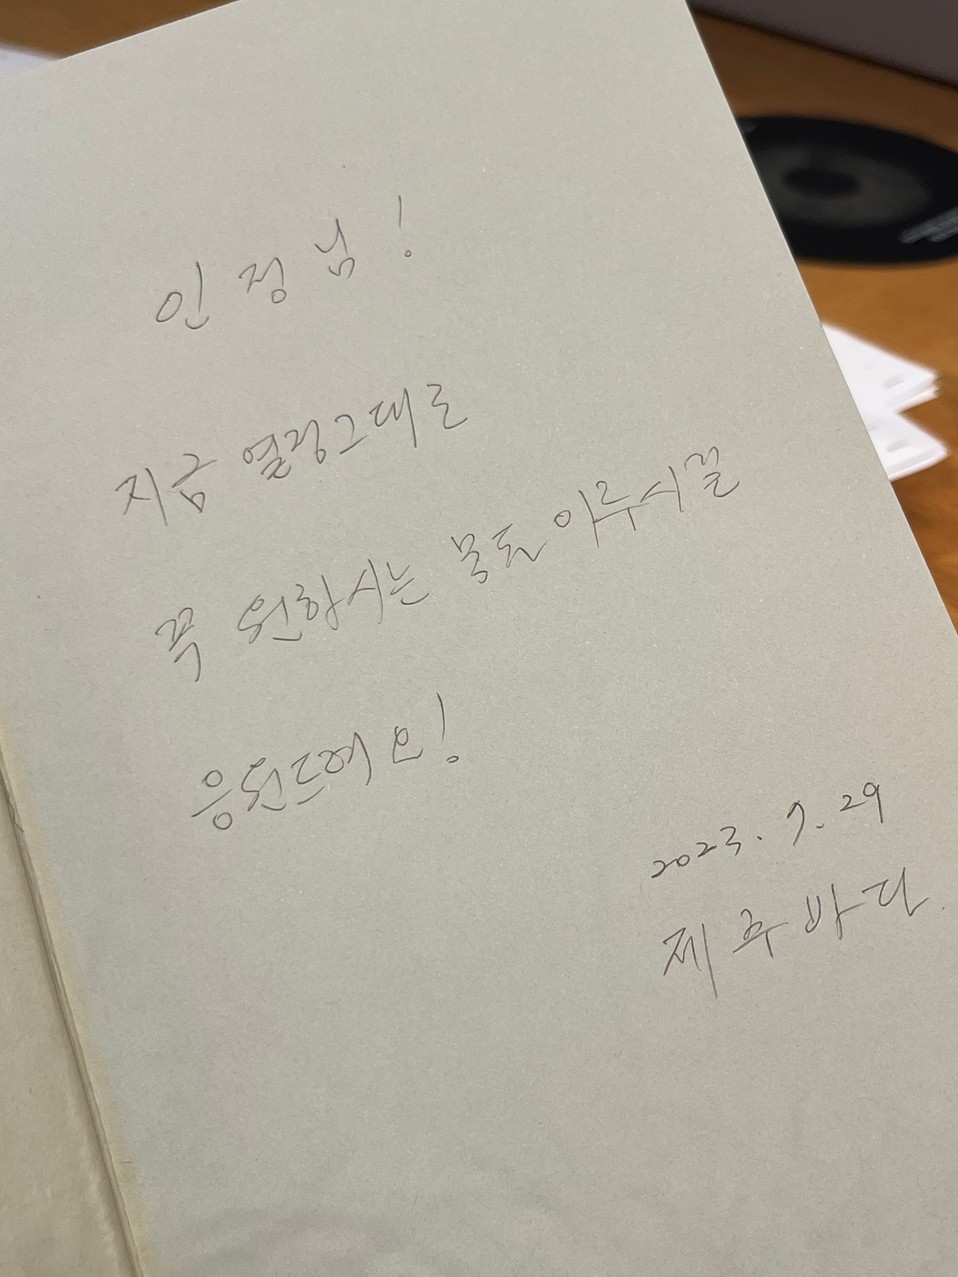 인정님!
지금 열정그대로
꼭 원하시는 목표 이루시길
응원드려요!
2023. 7. 29
제주바다.